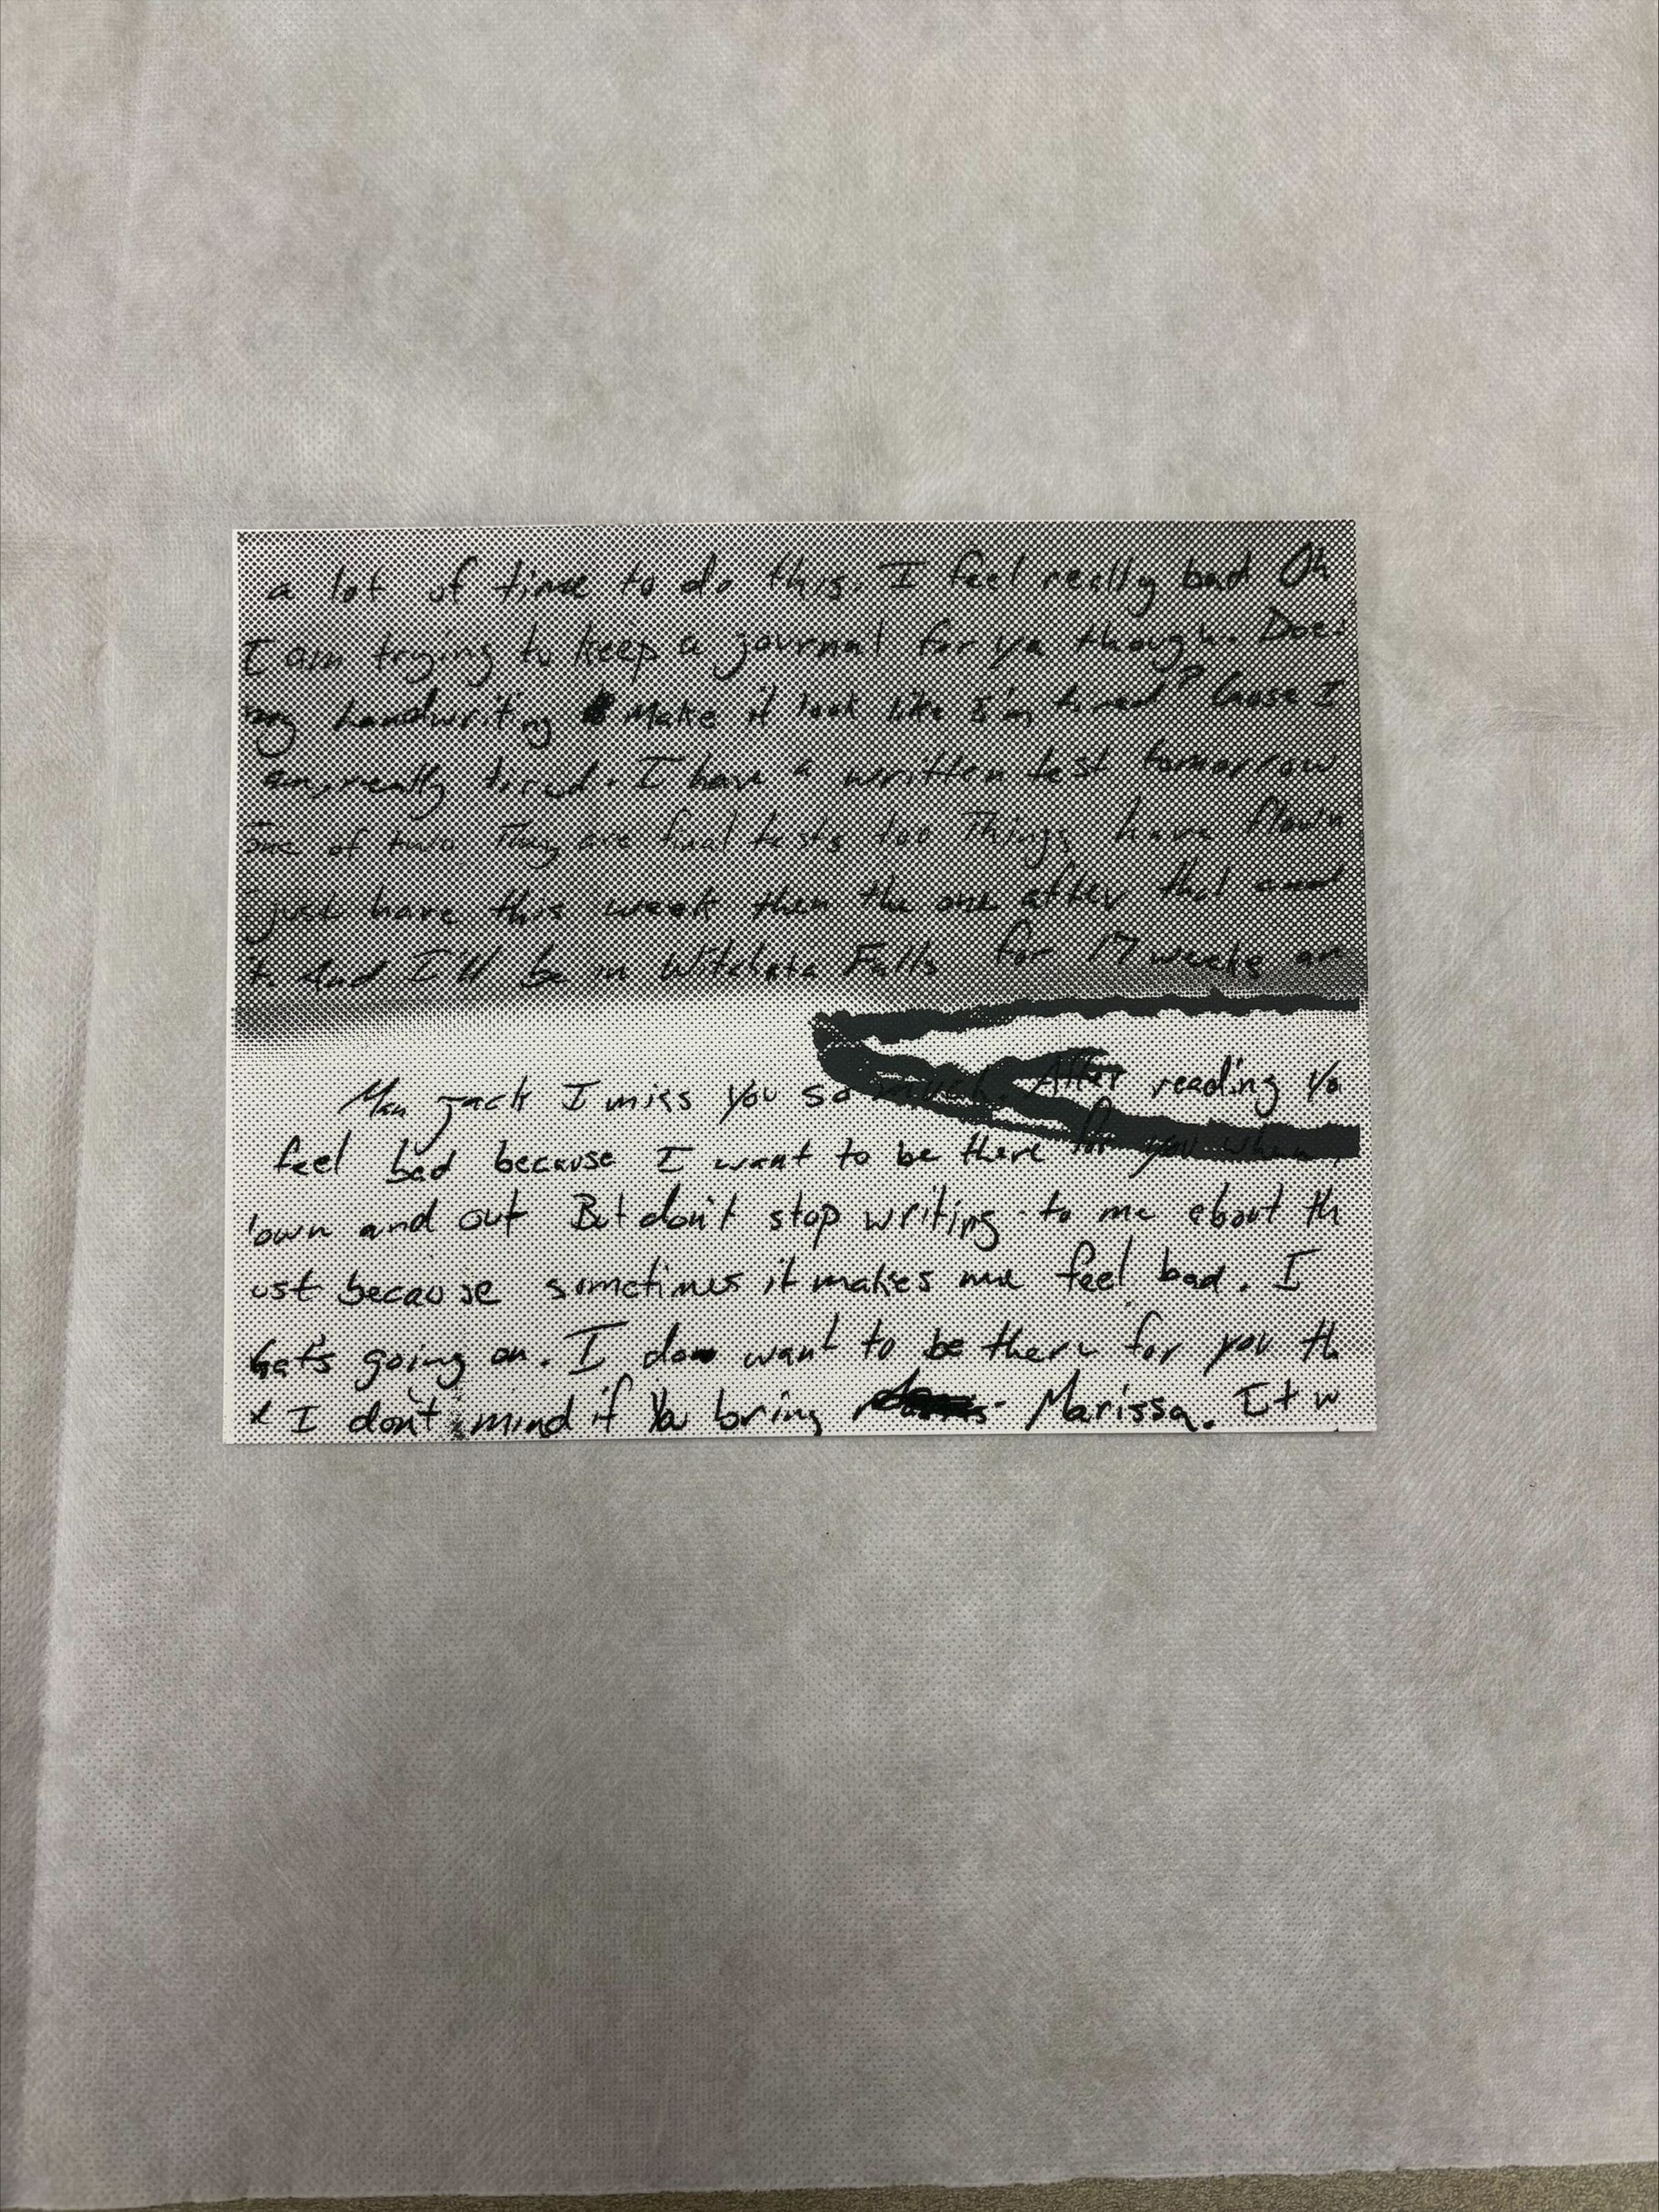 a lot of time to do this. I feel really bad Oh
I am trying to keep a journal for ya though. Does
my handwriting Make it look like I'm tired? Cause I
am really tired. I have a written test tomorrow
One of two They are final tests too Things have flown
just have this week then the one after that and
t. And I'll be in Witchata Falls for 17 weeks an
Man Jack I miss you so much. After reading yo
feel bad because I want to be there for you when
own and out But don't stop writing to me about th
ust because sometimes it makes me feel bad. I
going on. I do want to be there for you th
I don't mind if You bring Marissa. It w